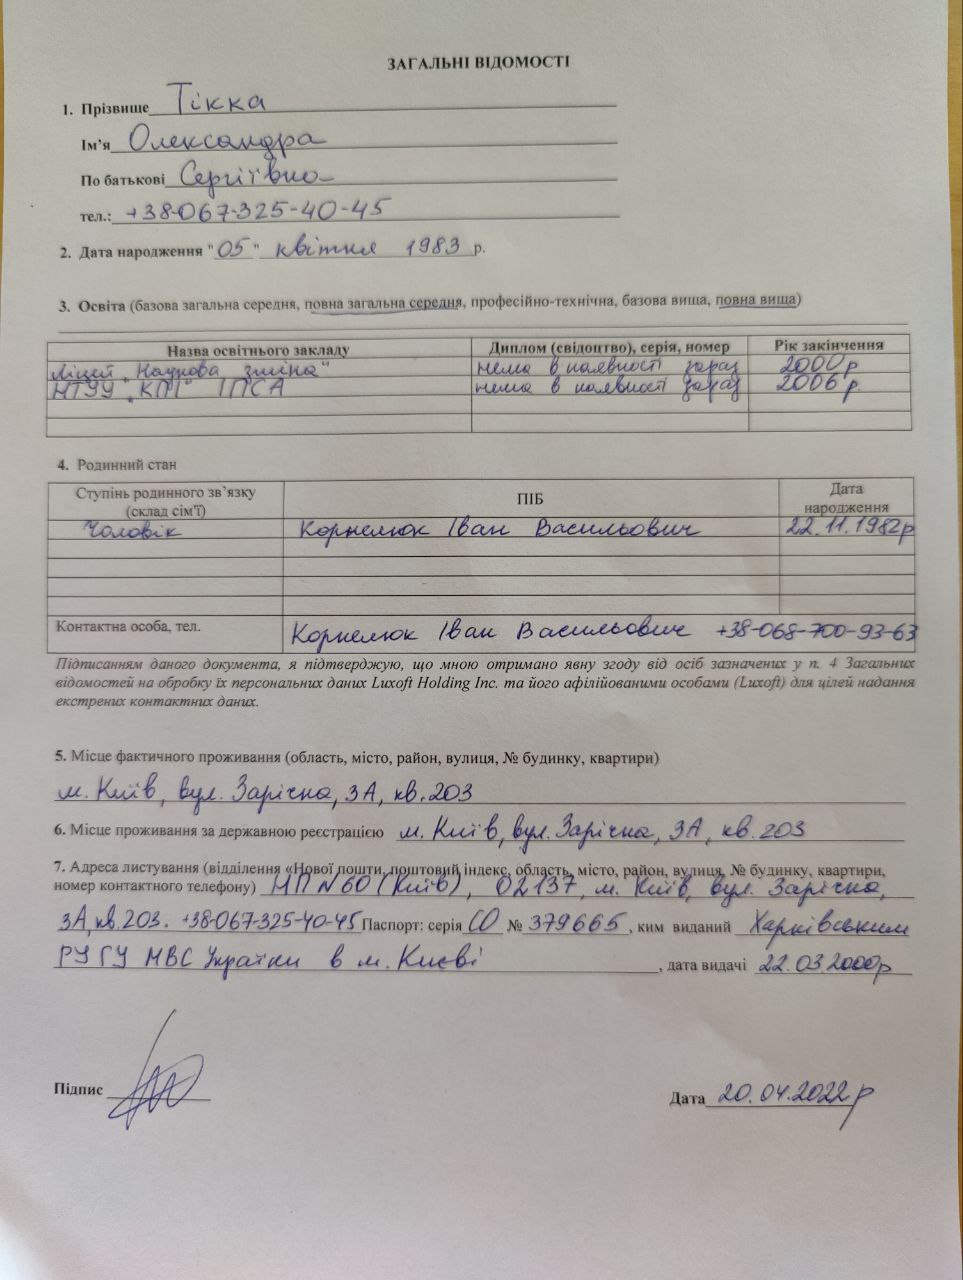 ЗАГАЛЬНІ ВІДОМОСТІ
1. Прізвище Тікка
Ім'я Олександра
По батькові Сергіївна
тел.: +38-067-325-40-45
2. Дата народження "05" квітня 1983 р.
3. Освіта (базова загальна середня, повна загальна середня, професійно-технічна, базова вища, повна вища)
Назва освітнього закладу Диплом (свідоцтво), серія, номер Рік закінчення
Ліцей "Наукова зміна" нема в наявності зараз 2000р
НТУУ "КПІ" ІПСА нема в наявності зараз 2006р.
4. Родинний стан
Ступінь родинного зв'язку (склад сім'ї) ПІБ Дата народження
Чоловік Корнелюк Іван Васильович 22.11.1982р
Контактна особа, тел. Корнелюк Іван Васильович +38-068-700-93-63
Підписанням даного документа, я підтверджую, що мною отримано явну згоду від осіб зазначених у п. 4 Загальних
відомостей на обробку їх персональних даних Luxoft Holding Inc. та його афілійованими особами (Luxoft) для цілей надання
екстрених контактних даних.
5. Місце фактичного проживання (область, місто, район, вулиця, № будинку, квартири)
м. Київ, вул. Зарічна, 3А, кв. 203
6. Місце проживання за державною реєстрацією м. Київ, вул. Зарічна, 3А, кв. 203
7. Адреса листування (відділення «Нової пошти, поштовий індекс, область, місто, район, вулиця, № будинку, квартири,
номер контактного телефону) НП №60 (Київ), 02137, м. Київ, вул. Зарічна,
3А, кв. 203. +38-067-325-40-45 Паспорт: серія СО № 379665, ким виданий Харківським
РУ ГУ МВС України в м. Києві, дата видачі 22.03.2000р
Підпис Дата 20.04.2022р